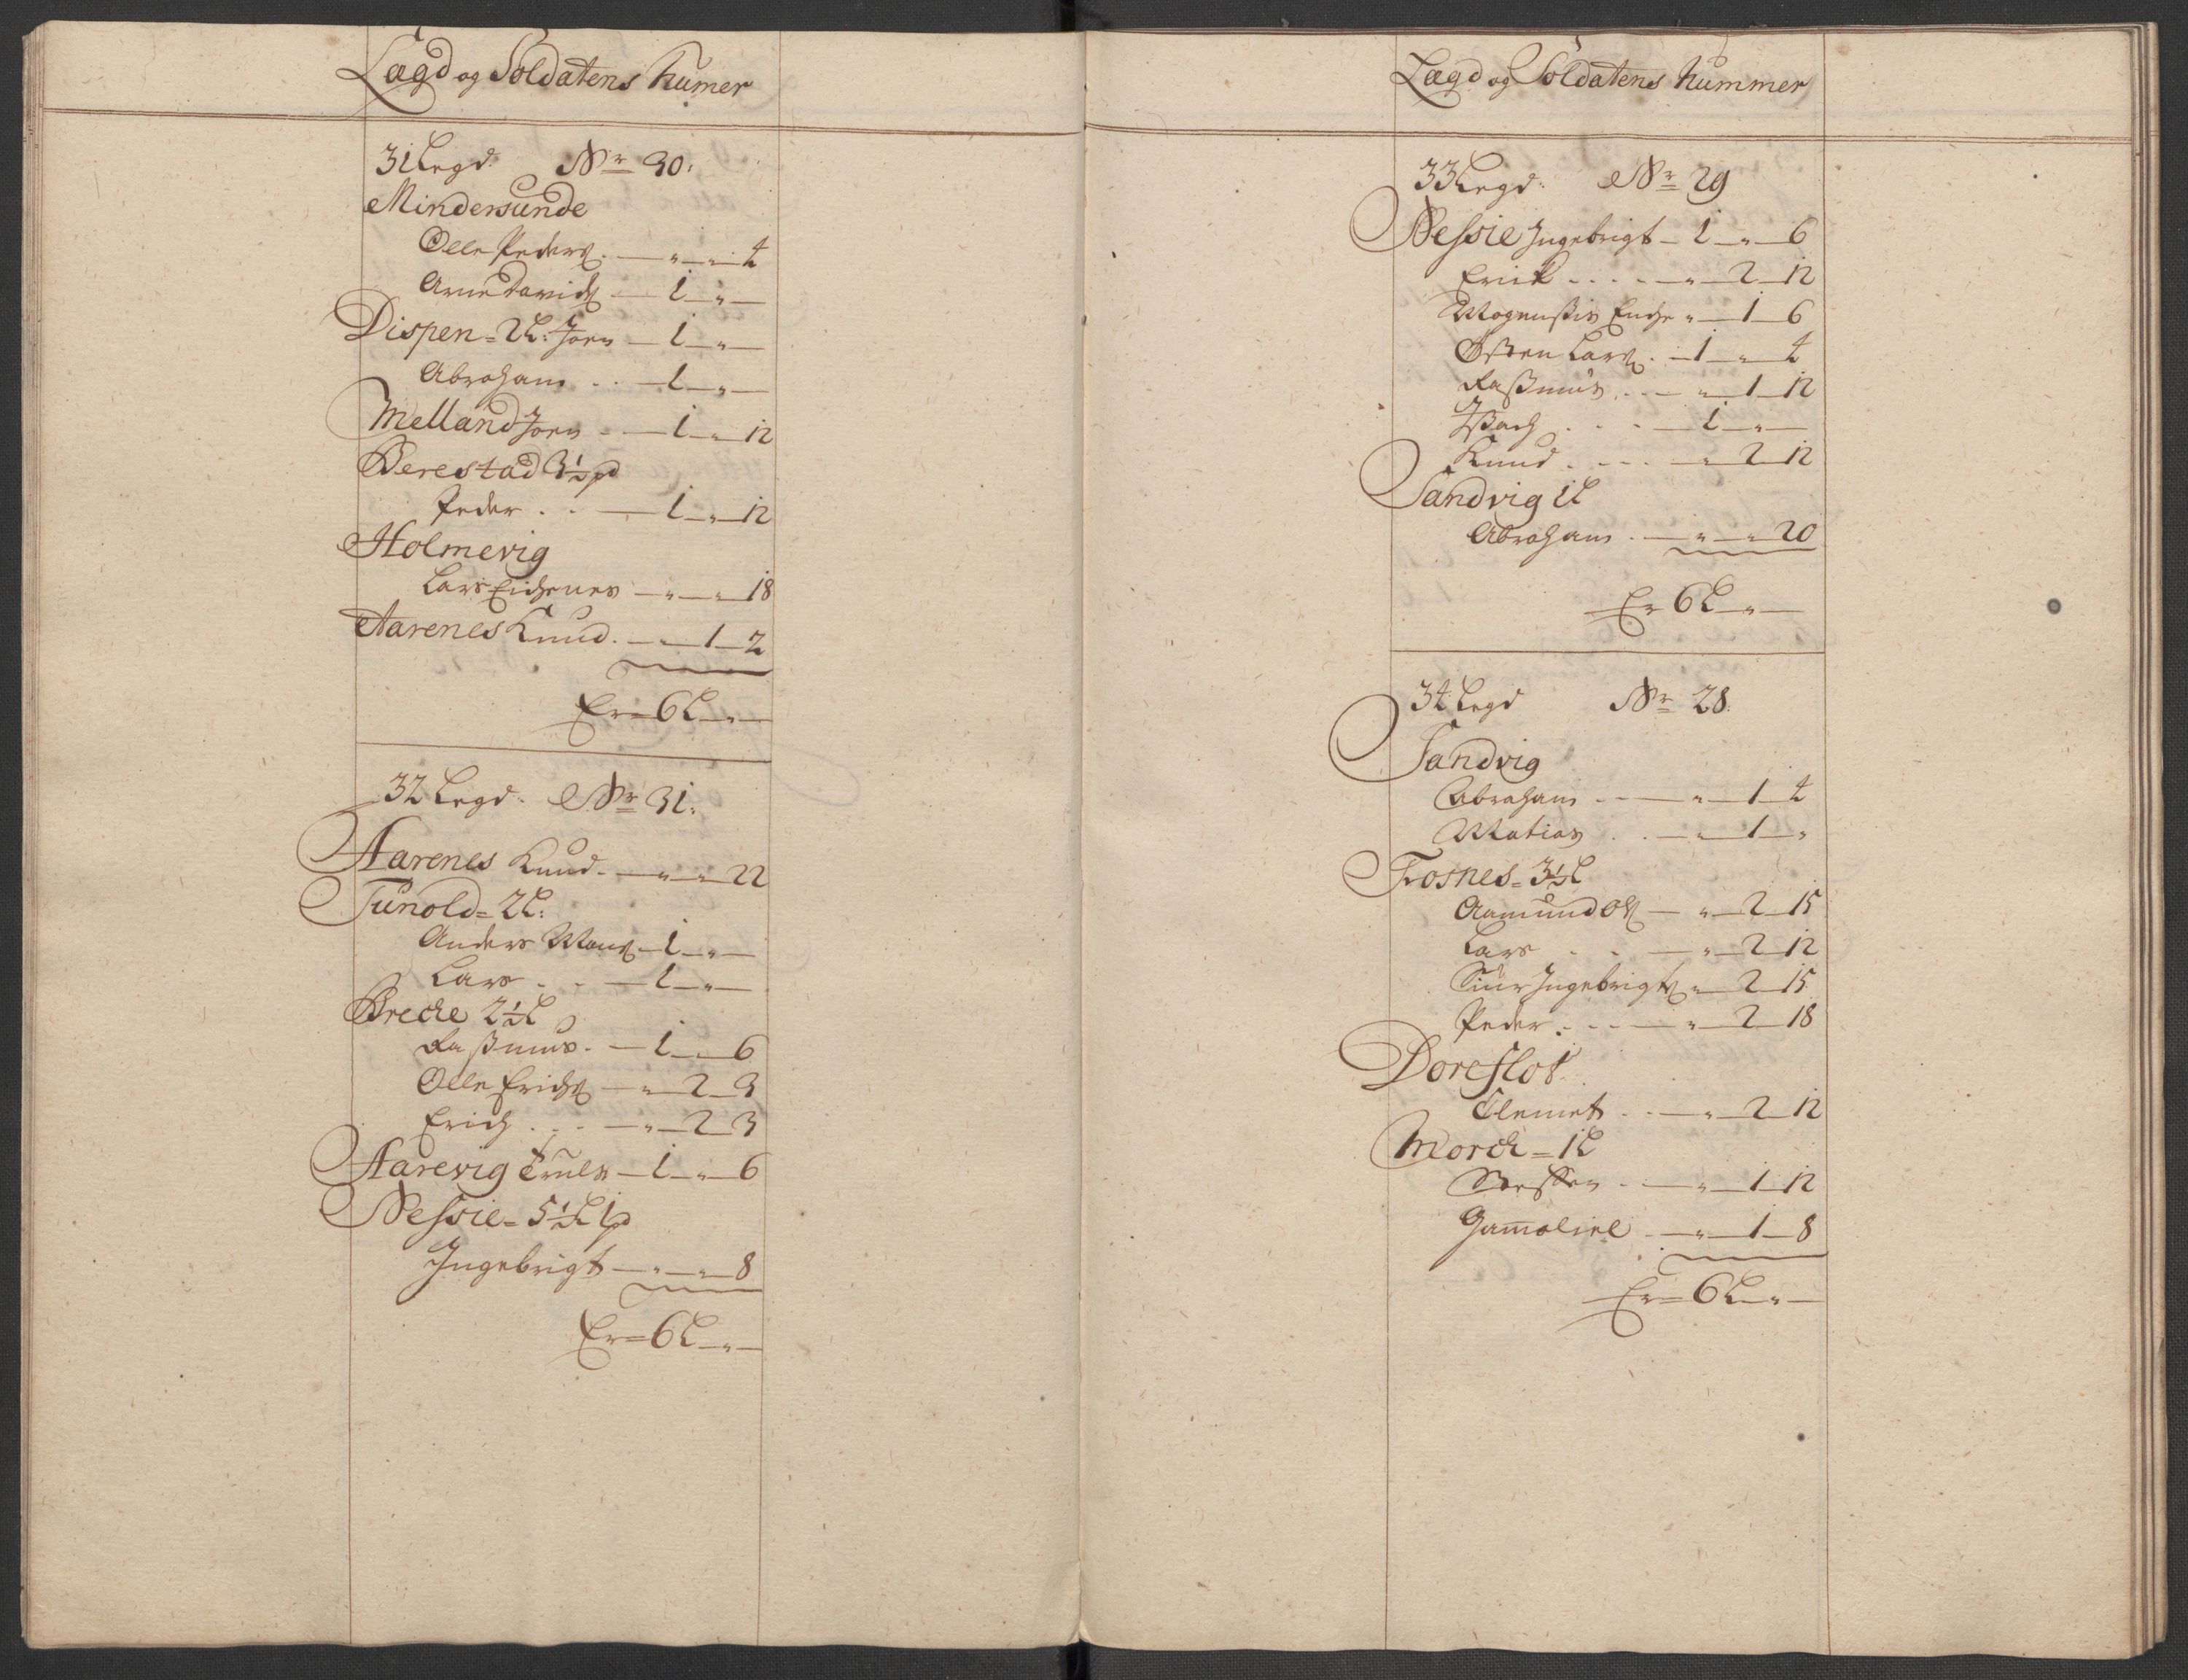 Lægd og Soldatens Numer
31 Legd. Nr 30:
Mindersunde
Olle Peders. — " — " — 4
Arne Davids — 1 — " —
Dispen = 2L: Joen — 1 — " —
Abraham . . — 1 — " —
Melland Joen — 1 — " — 12
Berestad 3½ pd
Peder . . — 1 — " — 12
Holmevig
Lars Eichenes — " — " — 18
Aarenes Knud. — " — 1 — 2
Er = 6 L — " —
32 Legd. Nr 31:
Aarenes Knud. — " — " — 22
Tunold = 2 L:
Anders Mons — 1 — " —
Lars . . — 1 — " —
Breche 2½ L
Rasmus. — 1 — " — 6
Olle Erichs — " — 2 — 3
Erich . . . — " — 2 — 3
Aarevig Truls — 1 — " — 6
Nessie = 5½ L 1 pd
Ingebrigt — " — " — 8
Er = 6 L — " —
Lægd og Soldatens Nummer
33 Legd: Nr 29
Nessie Ingebrigt — 1 — " — 6
Erick . . . . — " — 2 — 12
Mogensis Enche " — 1 — 6
Østen Lars . — 1 — " — 4
Rasmus . . . — " — 1 — 12
Isach . . . — 1 — " —
Knud . . . . — " — 2 — 12
Sandvig 1 L
Abraham . — " — " — 20
Er 6 L — " —
34 Legd Nr 28.
Sandvig
Abraham . . — " — 1 — 4
Matias . . — " — 1 — "
Frosnes = 3½ L
Aamund Ols — " — 2 — 15
Lars . . . — " — 2 — 12
Siur Ingebrigts " — 2 — 15
Peder . . . . — " — 2 — 18
Doreflot.
Clemet . . — " — 2 — 12
Morch = 1 L
. . — " — 1 — 12
Gamaliel . — " — 1 — 8
Er = 6 L — " —